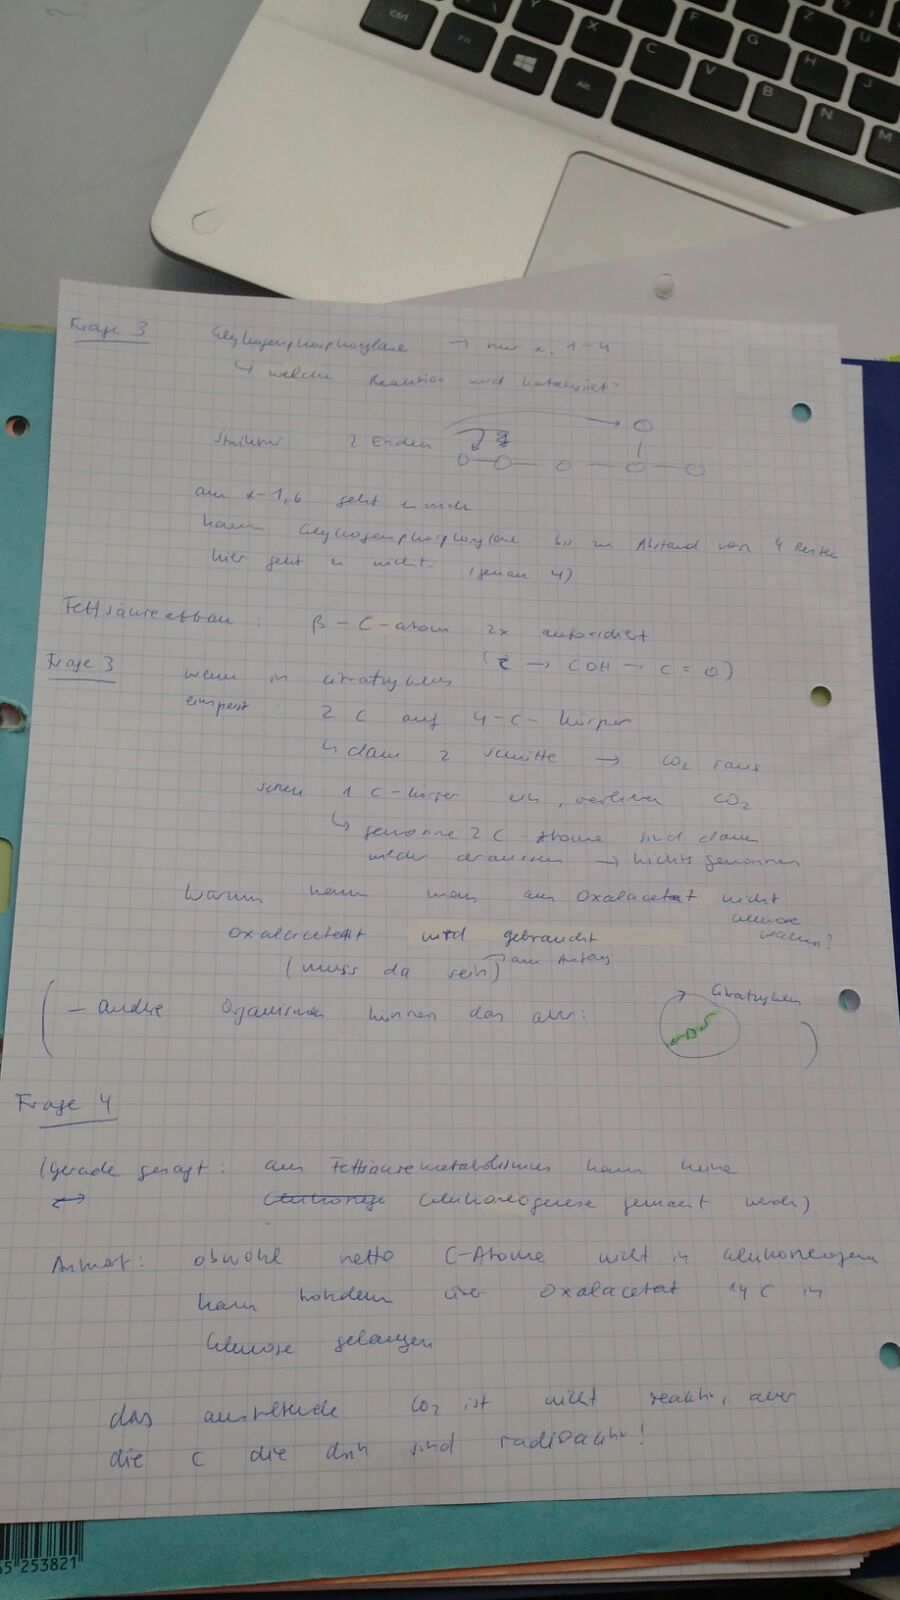 Frage 3 Glykogenphosphorylase → nur α, 1-4
↳ welche Reaktion wird katalysiert?
Struktur 2 Enden
am α-1,6 geht es nicht
kann Glykogenphosphorylase bis zu Abstand von 4 Resten
hier geht es nicht. (genau 4)
Fettsäureabbau: β-C-atom 2x aufoxidiert
(C → COH → C=O)
Frage 3 wenn in Citratzyklus
einspeist: 2 C auf 4-C-Körper
↳ dann 2 Schritte → CO2 raus
1 C-Körper, verlieren CO2
↳ gewonne 2 C-Atome sind dann
wieder draussen → nichts gewonnen
Warum kann man aus Oxalacetat nicht
Glucose machen?
Oxalacetat wird gebraucht
(muss da sein) am Anfang
Citratzyklus
(- andre Organismen können das aber:)
Frage 4
(gerade gesagt: aus Fettsäuremetabolismus kann keine
↔ Glukoneogenese gemacht werden)
Antwort: obwohl netto C-Atome nicht in Glukoneogenese
kann trotzdem über Oxalacetat 14C in
Glucose gelangen
das austretende CO2 ist nicht reaktiv, aber
die C die drin sind radioaktiv!
Ctrl
Fn
Alt
Y
X
C
V
B
N
M
F
G
H
J
Z
U
55 253821